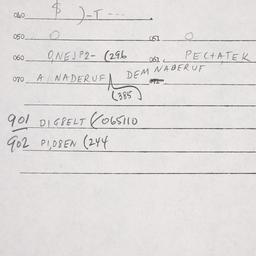 040 $ )-T ---
050 O 051 O
060 O,NEJP2- (296 061 PECTATEK
070 A NADERUF DEM NADERUF
(385)
901 DIGBELT (065110
902 PI,DBEN (244